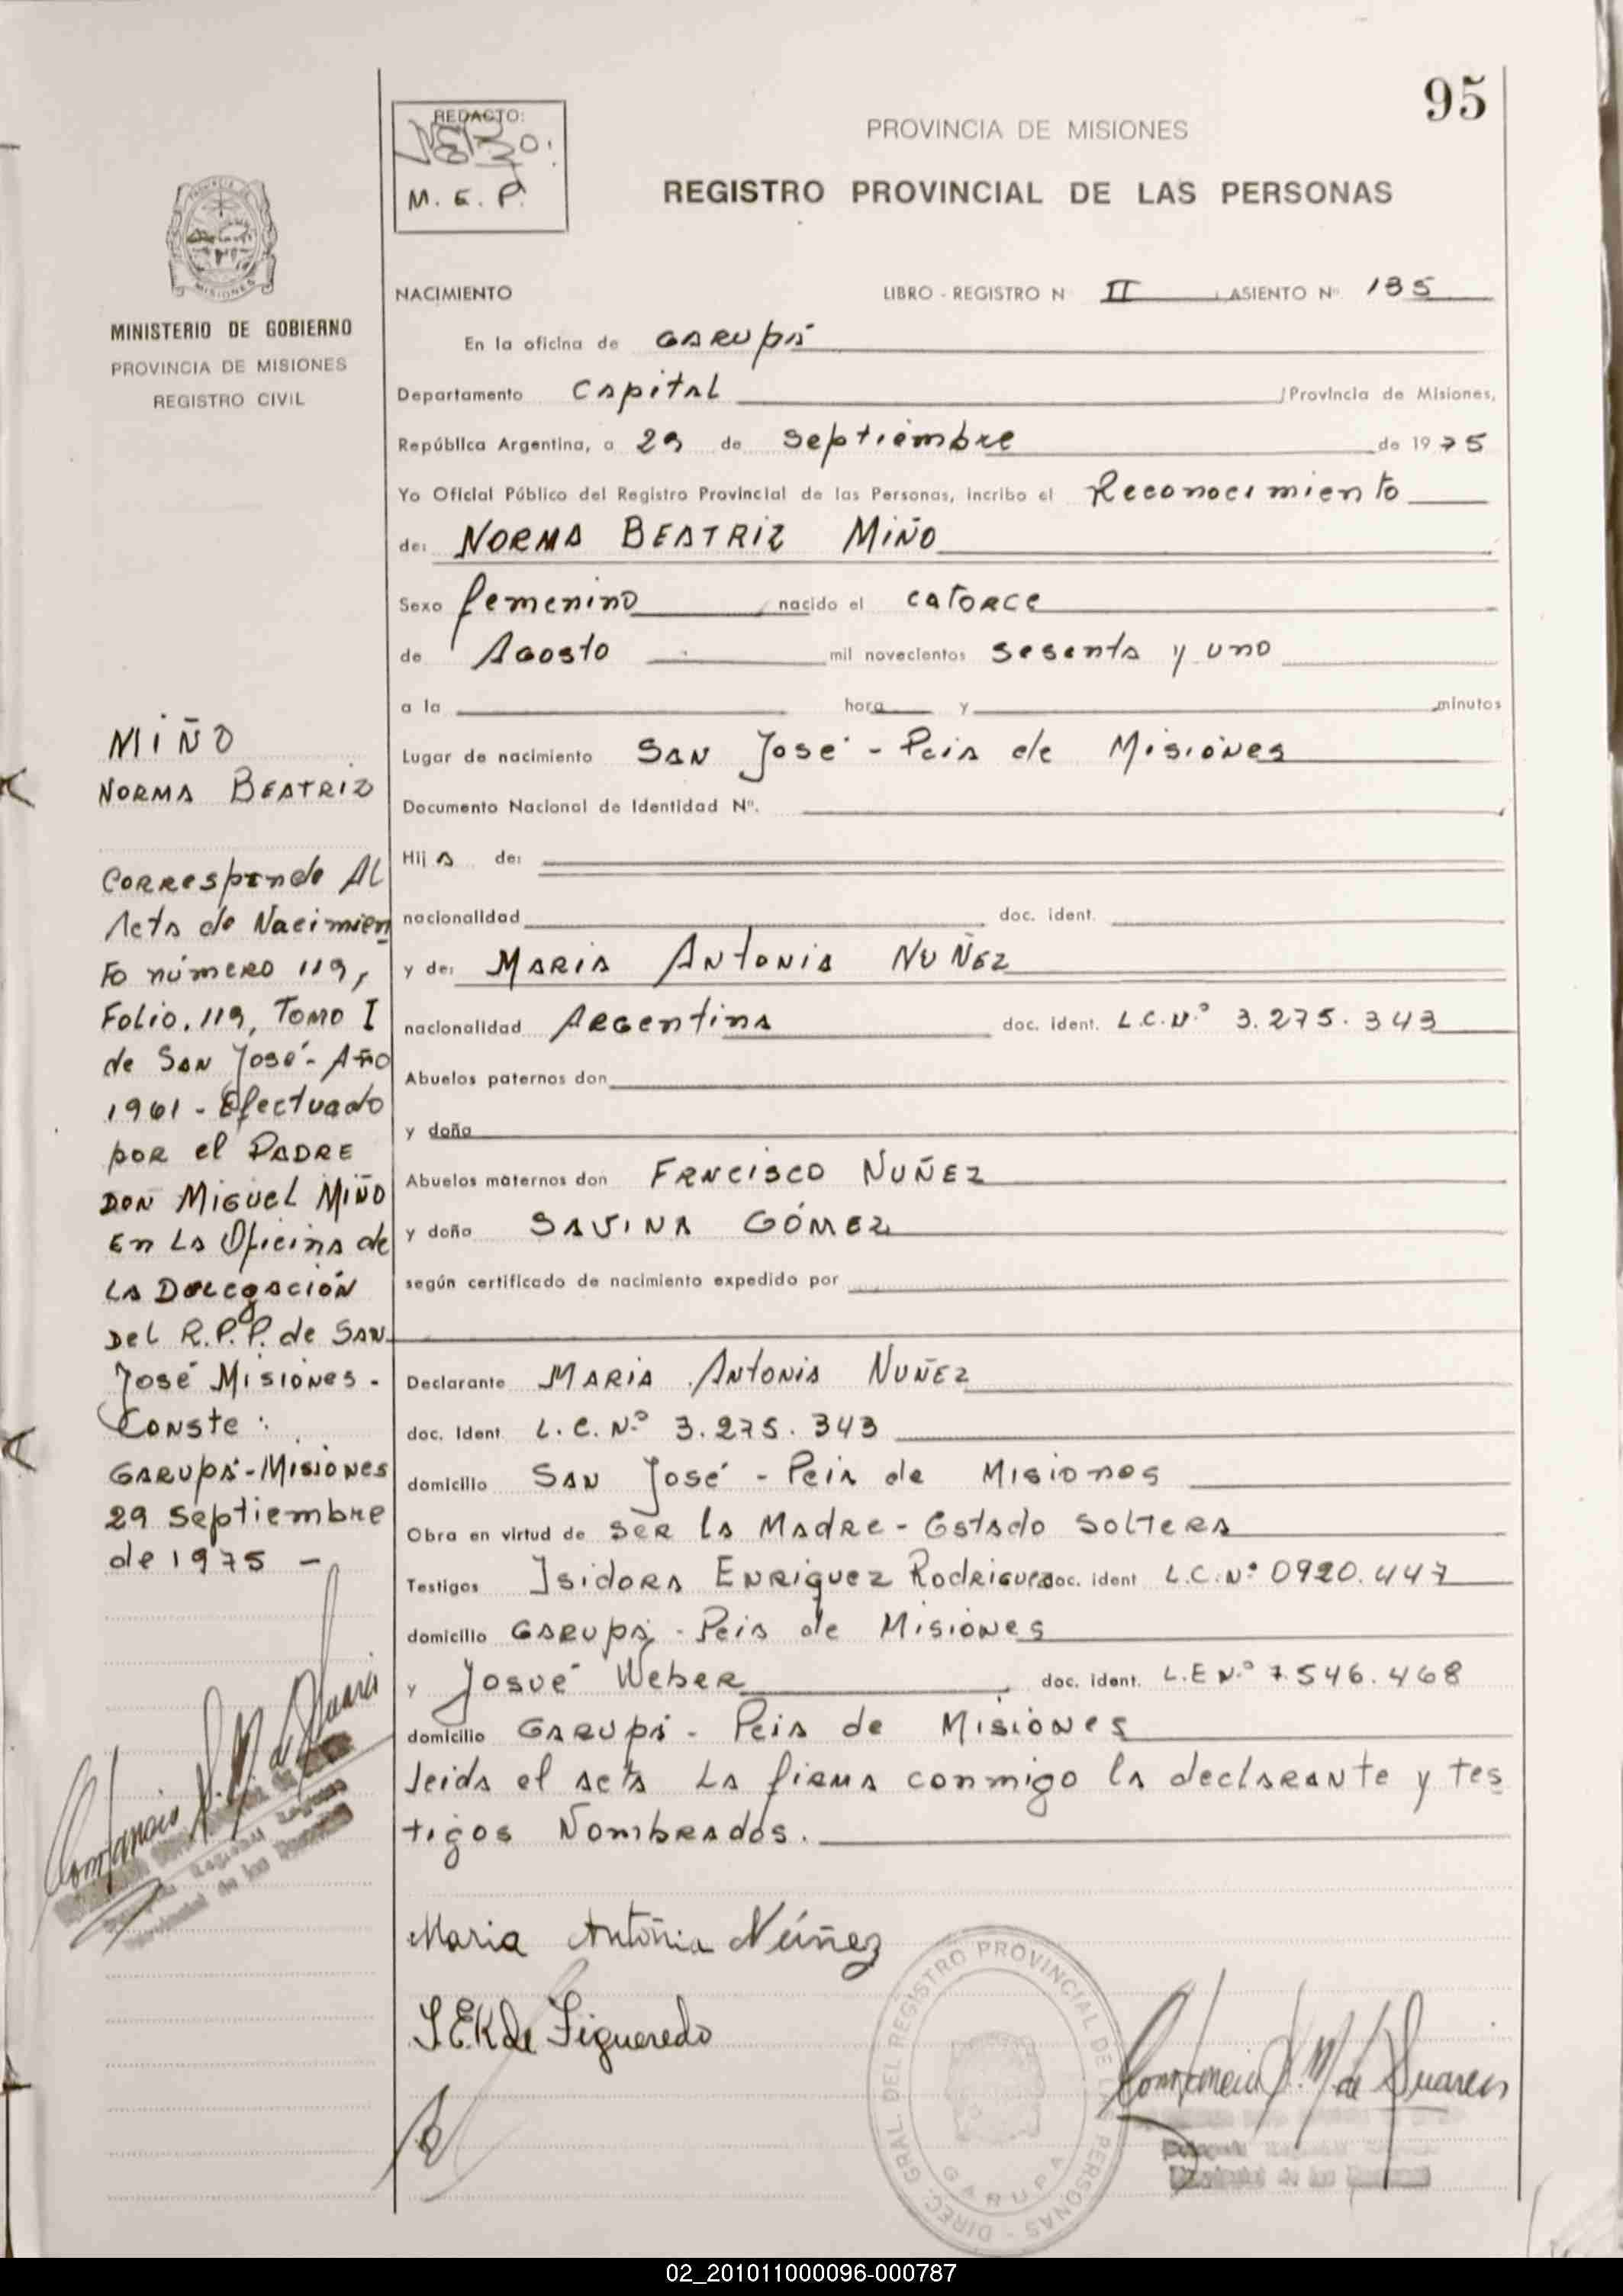 95
REDACTO:
M. E. P.
PROVINCIA DE MISIONES
REGISTRO PROVINCIAL DE LAS PERSONAS
MISIONES
MINISTERIO DE GOBIERNO
PROVINCIA DE MISIONES
REGISTRO CIVIL
NACIMIENTO LIBRO - REGISTRO N II ASIENTO Nº 195
En la oficina de GARUPÁ
Departamento CAPITAL Provincia de Misiones,
República Argentina, a 29 de septiembre de 1975
Yo Oficial Público del Registro Provincial de las Personas, incribo el Reconocimiento
de: NORMA BEATRIZ MIÑO
Sexo femenino nacido el CATORCE
de AGOSTO mil novecientos sesenta y uno
a la hora y minutos
Lugar de nacimiento SAN José - Pcia de Misiones
Documento Nacional de Identidad Nº.
Hij A de:
nacionalidad doc. ident.
y de: MARIA ANTONIA NUÑEZ
nacionalidad ARGENTINA doc. ident. L.C.N.º 3.275.343
Abuelos paternos don
y doña
Abuelos maternos don FRNCISCO NUÑEZ
y doña SAVINA GÓMEZ
según certificado de nacimiento expedido por
Declarante MARIA ANTONIA NUÑEZ
doc. Ident. L.C.N.º 3.275.343
domicilio SAN José - Pcia de Misiones
Obra en virtud de SER la MADRE - Estado SOLTERA
Testigos Isidora ENRIQUEZ RODRIGUEZ doc. ident L.C.Nº 0920.447
domicilio GARUPÁ - Pcia de Misiones
y Josué Weber doc. ident. L.E N.º 7.546.468
domicilio GARUPÁ - Pcia de Misiones
leida el acta la firma conmigo la declarante y tes
tigos Nombrados.
MIÑO
NORMA BEATRIZ
Corresponde Al
Acta de Nacimien
to número 119,
Folio.119, TOMO I
de SAN José - Año
1961 - Efectuado
por el PADRE
DON MIGUEL MIÑO
En la Oficina de
LA Delegación
Del R.P.P. de SAN
José Misiones -
Conste :
GARUPÁ - Misiones
29 septiembre
de 1975 -
Maria Antonia Núñez
de Figueredo
DIREC. GRAL DEL REGISTRO PROVINCIAL DE LAS PERSONAS - GARUPA
02_201011000096-000787